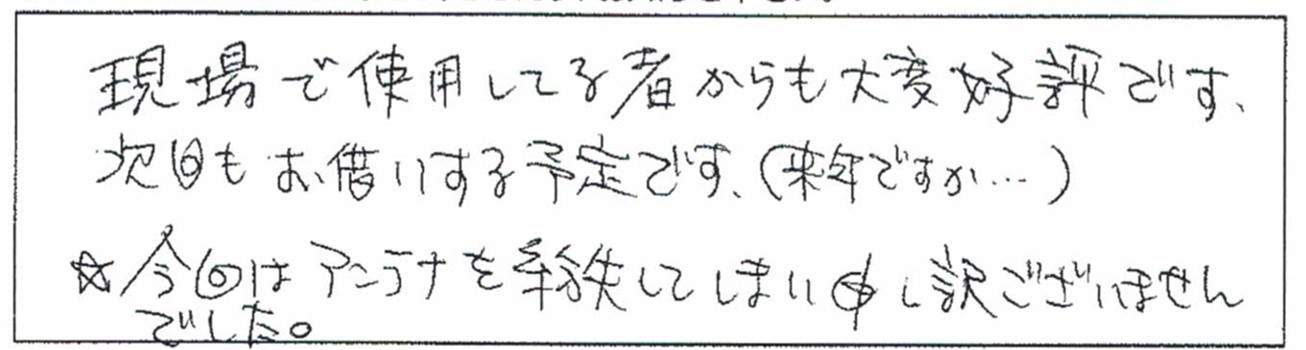 現場で使用してる者からも大変好評です、
次回もお借りする予定です、(来年ですが…)
☆今回はアンテナを紛失してしまい申し訳ございません
でした。